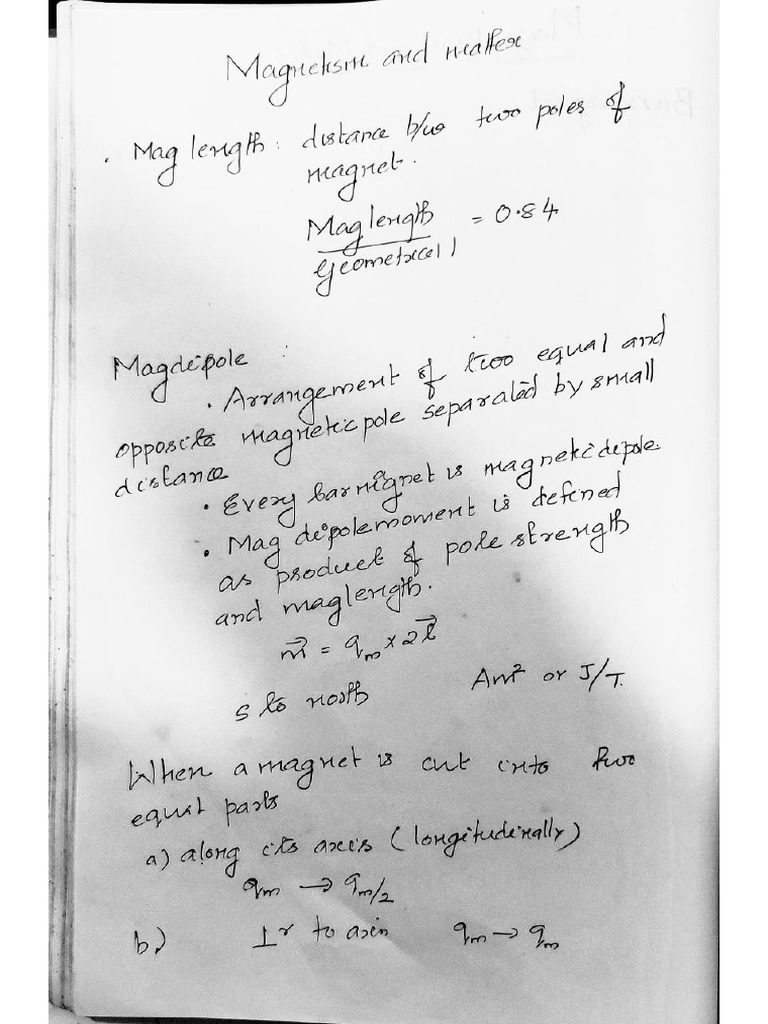 Magnetism and matter
. Mag length : distance b/w two poles of
magnet.
Mag length
/ Geometrical l = 0.84
Magdipole :
. Arrangement of two equal and
opposite magnetic pole separated by small
distance
. Every bar magnet is magnetic dipole.
. Mag dipolemoment is defined
as product of pole strength
and maglength.
m⃗ = qₘ × 2l⃗
S to north Am² or J/T.
When a magnet is cut into two
equal parts
a) along its axis (longitudinally)
qₘ → qₘ/2
b) ⊥r to axis qₘ → qₘ